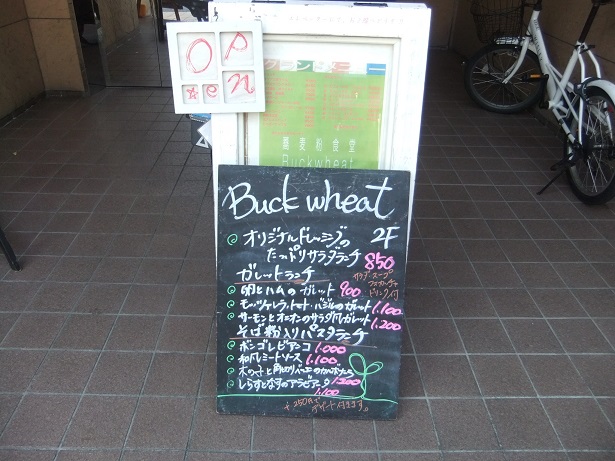 OP
en
グランドメニュー
蕎麦粉食堂
Buckwheat
Buck wheat
2F
オリジナルドレッシングの
たっぷりサラダランチ 850
ガレットランチ サラダ・スープ
卵とハムのガレット 900 ドリンク付
モッツァレラ・トマト・バジルのガレット 1.100
サーモンとオニオンのサラダガレット 1.200
そば粉入りパスタランチ
ボンゴレビアンコ 1.000
和風ミートソース 1.100
木の子と角切りベーコンの 1.200
しらすとなすのアラビアータ 1.100
+250円で
デザート付きます。